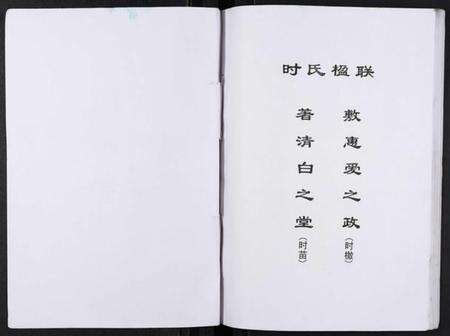 时氏楹联
敷惠爱之政(时橄)
著清白之堂(时苗)